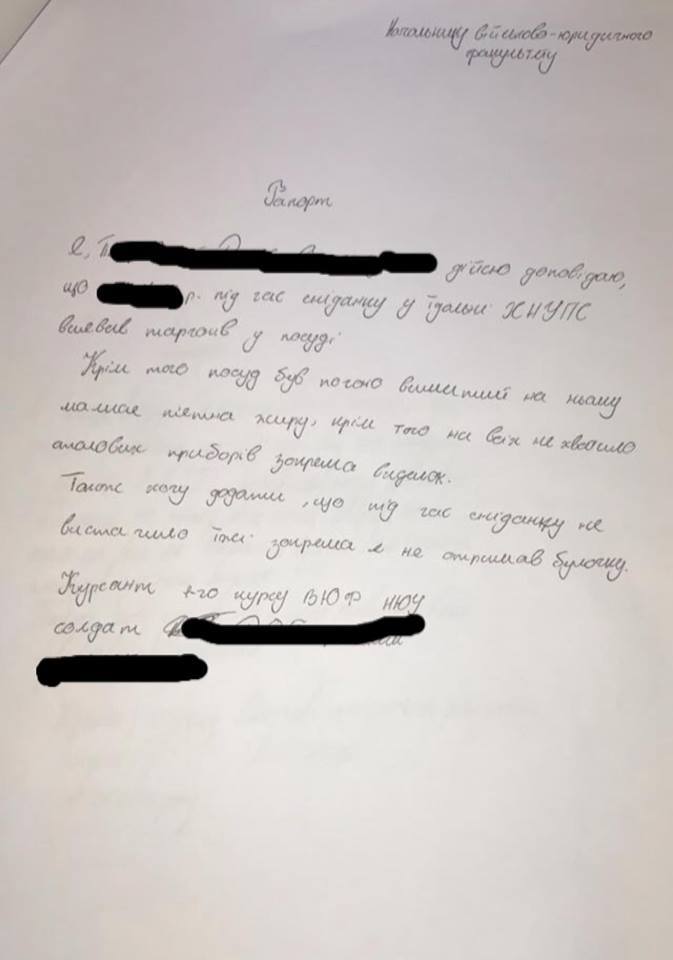 Начальнику військово-юридичного
факультету
Рапорт
Я, дійсно доповідаю,
що р. під час сніданку у їдальні ХНУПС
виявив таргана у посуді
Крім того посуд був погано вимитий на ньому
малися пʼятна жиру, крім того на всіх не хватило
столових приборів зокрема виделок.
Також хочу додати, що під час сніданку не
вистачило їжі зокрема я не отримав булочку.
Курсант го курсу ВЮФ НЮУ
солдат